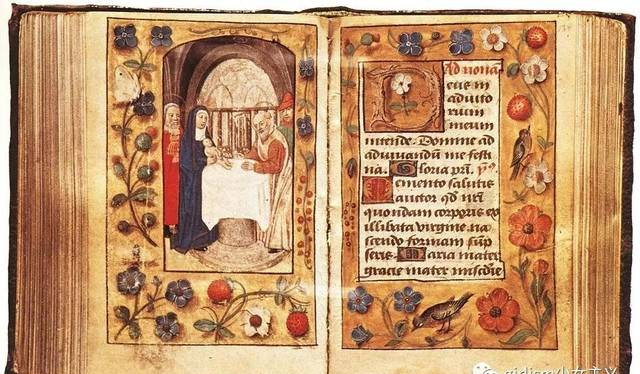 Ad nonā
eus in
adiuto
rium
meum
intende. Domine ad
adiuvandū me festi
na. Gloria prī. pꝫ.
Memento salutis
auctor qd nrī
quondam corporis ex
illibata virgine na
scendo formam sūp
seris Maria mater
gracie mater miscdie
girlism少女主义